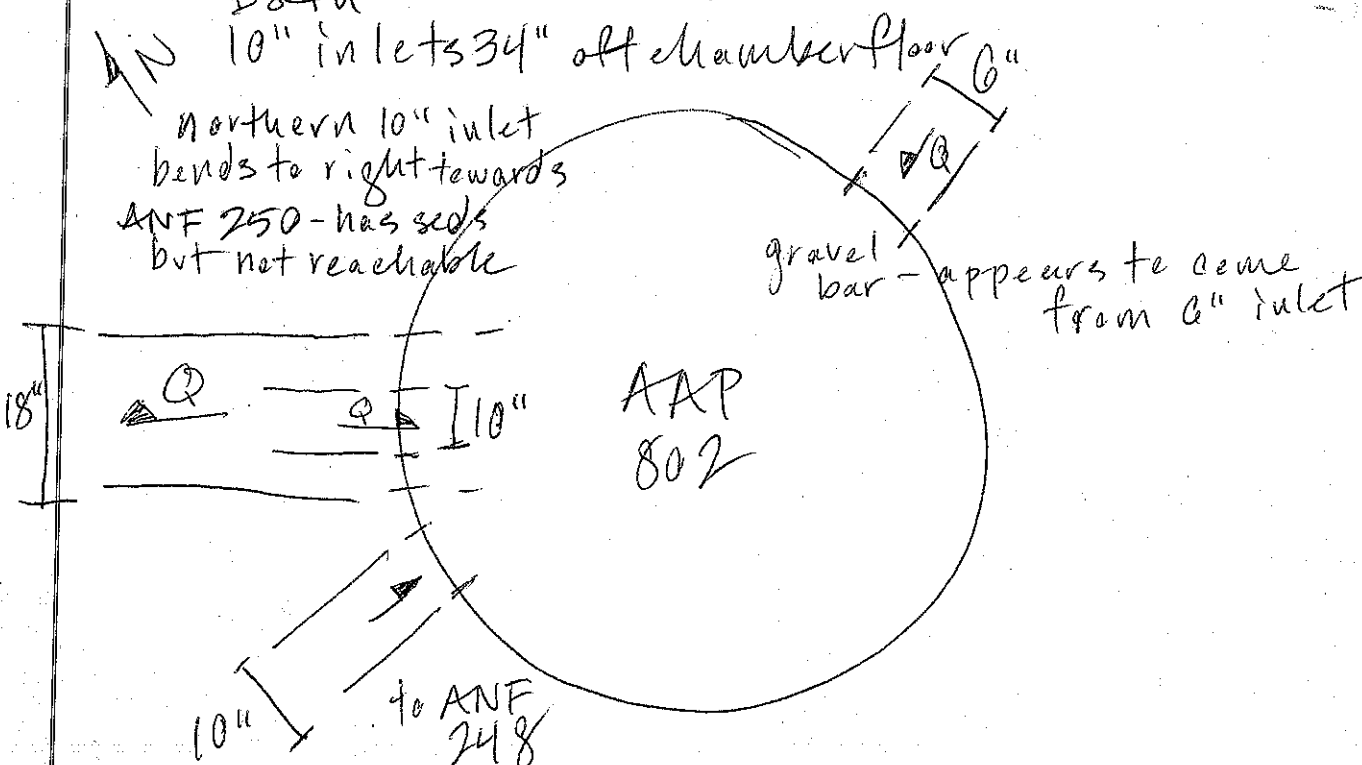 Both
N
10" inlets 34" off chamber floor
6"
northern 10" inlet
bends to right towards
ANF 250 - has seds
but not reachable
Q
gravel
bar - appears to come
from 6" inlet
18"
Q
Q
10"
AAP
802
10"
to ANF
248